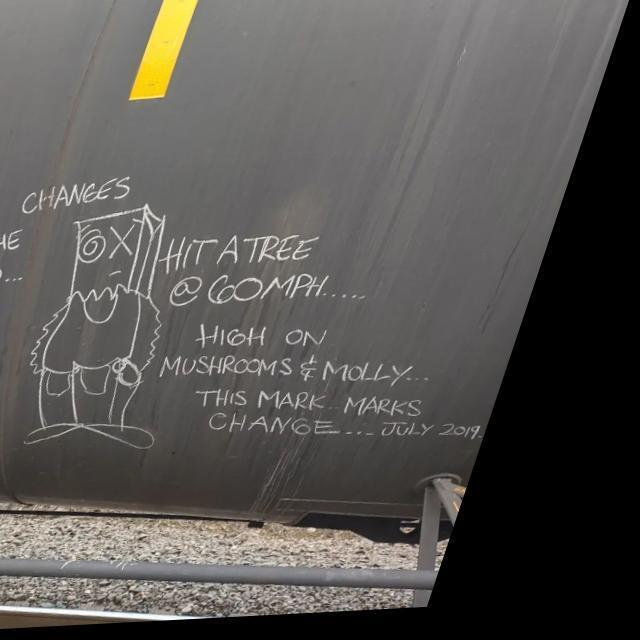 CHANGES
HE
HIT A TREE
@ 60 MPH.....
HIGH ON
MUSHROOMS & MOLLY...
THIS MARK MARKS
CHANGE.... JULY 2019